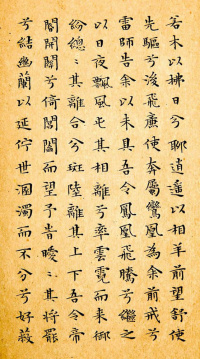 若木以拂日兮聊逍遙以相羊前望舒使
先驅兮後飛廉使奔屬鸞凰為余前戒兮
雷師告余以未具吾令鳳凰飛騰兮繼之
以日夜飄風屯其相離兮率雲霓而來御
紛總〻其離合兮斑陸離其上下吾令帝
閽開關兮倚閶闔而望予旹曖〻其將罷
兮結幽蘭以延佇世溷濁而不分兮好蔽